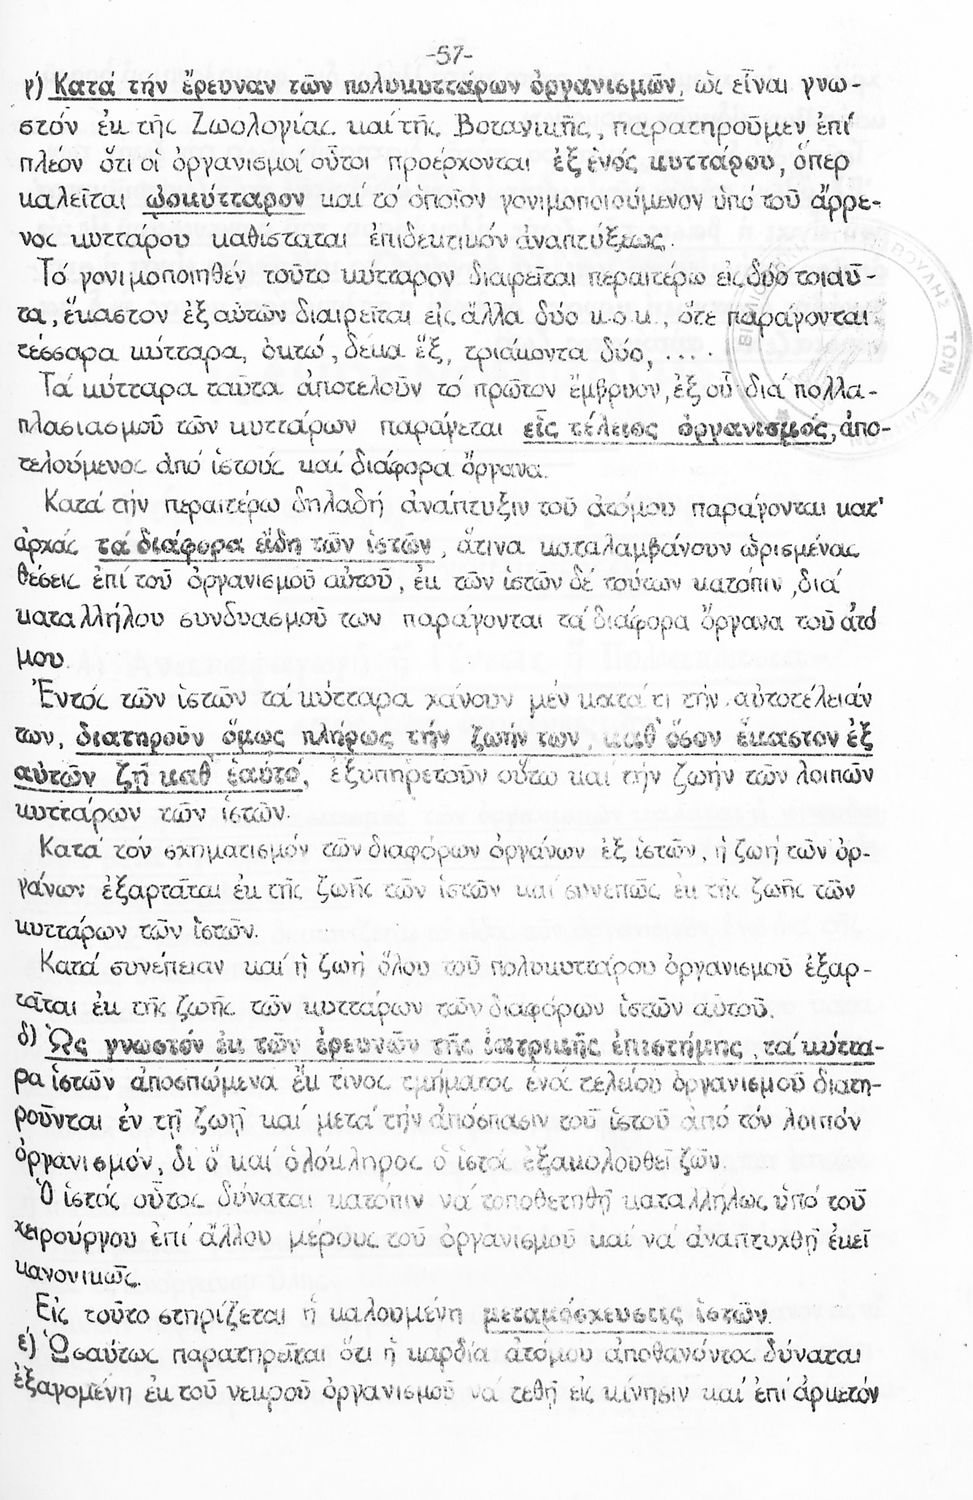 -57-
γ) Κατά τήν ἔρευναν τῶν πολυκυττάρων ὀργανισμῶν, ὡς εἶναι γνω-
στόν ἐκ τῆς Ζωολογίας καί τῆς Βοτανικῆς, παρατηροῦμεν ἐπί
πλέον ὅτι οἱ ὀργανισμοί οὗτοι προέρχονται ἐξ ἑνός κυττάρου, ὅπερ
καλεῖται ὠοκύτταρον καί τό ὁποῖον γονιμοποιούμενον ὑπό τοῦ ἄρρε-
νος κυττάρου καθίσταται ἐπιδεκτικόν ἀναπτύξεως.
Τό γονιμοποιηθέν τοῦτο κύτταρον διαιρεῖται περαιτέρω εἰς δύο τοιαῦ-
τα, ἕκαστον ἐξ αὐτῶν διαιρεῖται εἰς ἄλλα δύο κ.ο.κ., ὅτε παράγονται
τέσσαρα κύτταρα, ὀκτώ, δέκα ἕξ, τριάκοντα δύο, ....
Τά κύτταρα ταῦτα ἀποτελοῦν τό πρῶτον ἔμβρυον, ἐξ οὗ διά πολλα-
πλασιασμοῦ τῶν κυττάρων παράγεται εἷς τέλειος ὀργανισμός, ἀπο-
τελούμενος ἀπό ἱστούς καί διάφορα ὄργανα.
Κατά τήν περαιτέρω δηλαδή ἀνάπτυξιν τοῦ ἀτόμου παράγονται κατ'
ἀρχάς τά διάφορα εἴδη τῶν ἱστῶν, ἅτινα καταλαμβάνουν ὡρισμένας
θέσεις ἐπί τοῦ ὀργανισμοῦ αὐτοῦ, ἐκ τῶν ἱστῶν δέ τούτων κατόπιν, διά
καταλλήλου συνδυασμοῦ των παράγονται τά διάφορα ὄργανα τοῦ ἀτό
μου.
Ἐντός τῶν ἱστῶν τά κύτταρα χάνουν μέν κατά τι τήν αὐτοτέλειάν
των, διατηροῦν ὅμως πλήρως τήν ζωήν των, καθ' ὅσον ἕκαστον ἐξ
αὐτῶν ζῆ καθ' ἑαυτό, ἐξυπηρετοῦν οὕτω καί τήν ζωήν τῶν λοιπῶν
κυττάρων τῶν ἱστῶν.
Κατά τόν σχηματισμόν τῶν διαφόρων ὀργάνων ἐξ ἱστῶν, ἡ ζωή τῶν ὀρ-
γάνων ἐξαρτᾶται ἐκ τῆς ζωῆς τῶν ἱστῶν καί συνεπῶς ἐκ τῆς ζωῆς τῶν
κυττάρων τῶν ἱστῶν.
Κατά συνέπειαν καί ἡ ζωή ὅλου τοῦ πολυκυττάρου ὀργανισμοῦ ἐξαρ-
τᾶται ἐκ τῆς ζωῆς τῶν κυττάρων τῶν διαφόρων ἱστῶν αὐτοῦ.
δ) Ὡς γνωστόν ἐκ τῶν ἐρευνῶν τῆς ἰατρικῆς ἐπιστήμης, τά κύττα-
ρα ἱστῶν ἀποσπώμενα ἔκ τινος τμήματος ἑνός τελείου ὀργανισμοῦ διατη-
ροῦνται ἐν τῇ ζωῇ καί μετά τήν ἀπόσπασιν τοῦ ἱστοῦ ἀπό τόν λοιπόν
ὀργανισμόν, δι ὅ καί ὁλόκληρος ὁ ἱστός ἐξακολουθεῖ ζῶν.
Ὁ ἱστός οὗτος δύναται κατόπιν νά τοποθετηθῆ καταλλήλως ὑπό τοῦ
χειρούργου ἐπί ἄλλου μέρους τοῦ ὀργανισμοῦ καί νά ἀναπτυχθῆ ἐκεῖ
κανονικῶς.
Εἰς τοῦτο στηρίζεται ἡ καλουμένη μεταμόσχευσις ἱστῶν.
ε) Ὡσαύτως παρατηρεῖται ὅτι ἡ καρδία ἀτόμου ἀποθανόντος δύναται
ἐξαγομένη ἐκ τοῦ νεκροῦ ὀργανισμοῦ νά τεθῆ εἰς κίνησιν καί ἐπί ἀρκετόν